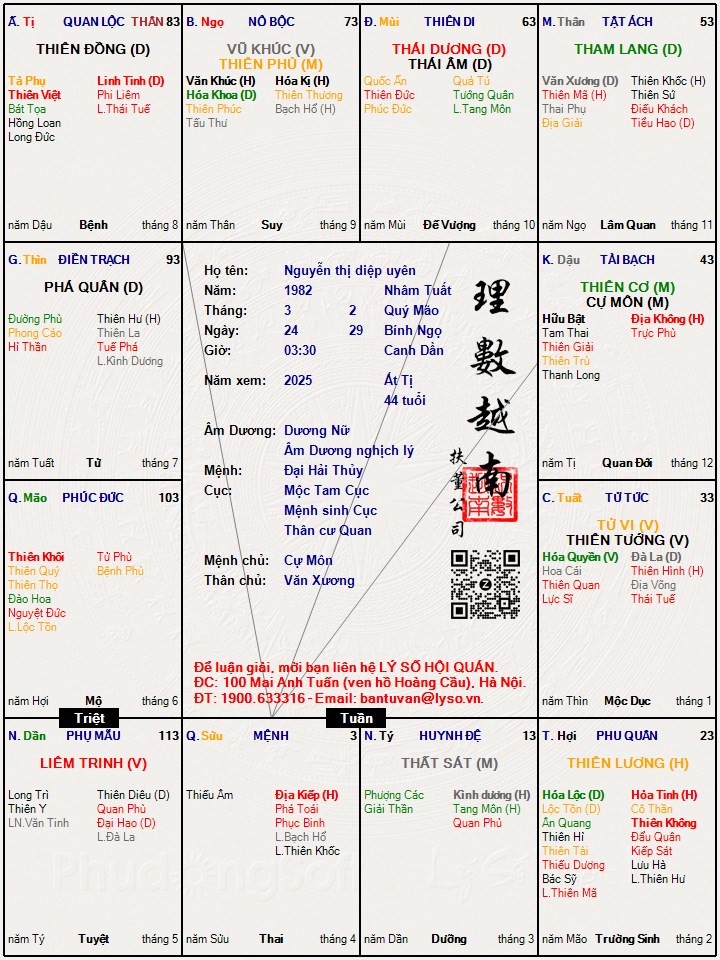 Ất. Tị QUAN LỘC THÂN 83
THIÊN ĐỒNG (D)
Tả Phụ
Thiên Việt
Bát Tọa
Hồng Loan
Long Đức
Linh Tinh (D)
Phi Liêm
L.Thái Tuế
năm Dậu Bệnh tháng 8
B. Ngọ NÔ BỘC 73
VŨ KHÚC (V)
THIÊN PHỦ (M)
Văn Khúc (H)
Hóa Khoa (D)
Thiên Phúc
Tấu Thư
Hóa Kị (H)
Thiên Thương
Bạch Hổ (H)
năm Thân Suy tháng 9
Đ. Mùi THIÊN DI 63
THÁI DƯƠNG (D)
THÁI ÂM (D)
Quốc Ấn
Thiên Đức
Phúc Đức
Quả Tú
Tướng Quân
L.Tang Môn
năm Mùi Đế Vượng tháng 10
M. Thân TẬT ÁCH 53
THAM LANG (D)
Văn Xương (D)
Thiên Mã (H)
Thai Phụ
Địa Giải
Thiên Khốc (H)
Thiên Sứ
Điếu Khách
Tiểu Hao (D)
năm Ngọ Lâm Quan tháng 11
G. Thìn ĐIỀN TRẠCH 93
PHÁ QUÂN (D)
Đường Phù
Phong Cáo
Hỉ Thần
Thiên Hư (H)
Thiên La
Tuế Phá
L.Kình Dương
năm Tuất Tử tháng 7
Họ tên: Nguyễn thị diệp uyên
Năm: 1982 Nhâm Tuất
Tháng: 3 2 Quý Mão
Ngày: 24 29 Bính Ngọ
Giờ: 03:30 Canh Dần
Năm xem: 2025 Ất Tị
44 tuổi
Âm Dương: Dương Nữ
Âm Dương nghịch lý
Mệnh: Đại Hải Thủy
Cục: Mộc Tam Cục
Mệnh sinh Cục
Thân cư Quan
Mệnh chủ: Cự Môn
Thân chủ: Văn Xương
理數越南
扶董公司
Để luận giải, mời bạn liên hệ LÝ SỐ HỘI QUÁN.
ĐC: 100 Mai Anh Tuấn (ven hồ Hoàng Cầu), Hà Nội.
ĐT: 1900.633316 - Email: bantuvan@lyso.vn.
K. Dậu TÀI BẠCH 43
THIÊN CƠ (M)
CỰ MÔN (M)
Hữu Bật
Tam Thai
Thiên Giải
Thiên Trù
Thanh Long
Địa Không (H)
Trực Phù
năm Tị Quan Đới tháng 12
Q. Mão PHÚC ĐỨC 103
Thiên Khôi
Thiên Quý
Thiên Thọ
Đào Hoa
Nguyệt Đức
L.Lộc Tồn
Tử Phù
Bệnh Phù
năm Hợi Mộ tháng 6
C. Tuất TỬ TỨC 33
TỬ VI (V)
THIÊN TƯỚNG (V)
Hóa Quyền (V)
Hoa Cái
Thiên Quan
Lực Sĩ
Đà La (D)
Thiên Hình (H)
Địa Võng
Thái Tuế
năm Thìn Mộc Dục tháng 1
Triệt
Tuần
N. Dần PHỤ MẪU 113
LIÊM TRINH (V)
Long Trì
Thiên Y
LN.Văn Tinh
Thiên Diêu (D)
Quan Phù
Đại Hao (D)
L.Đà La
năm Tý Tuyệt tháng 5
Q. Sửu MỆNH 3
Thiếu Âm
Địa Kiếp (H)
Phá Toái
Phục Binh
L.Bạch Hổ
L.Thiên Khốc
năm Sửu Thai tháng 4
N. Tý HUYNH ĐỆ 13
THẤT SÁT (M)
Phượng Các
Giải Thần
Kình dương (H)
Tang Môn (H)
Quan Phủ
năm Dần Dưỡng tháng 3
T. Hợi PHU QUÂN 23
THIÊN LƯƠNG (H)
Hóa Lộc (D)
Lộc Tồn (D)
Ân Quang
Thiên Hỉ
Thiên Tài
Thiếu Dương
Bác Sỹ
L.Thiên Mã
Hỏa Tinh (H)
Cô Thần
Thiên Không
Đẩu Quân
Kiếp Sát
Lưu Hà
L.Thiên Hư
năm Mão Trường Sinh tháng 2